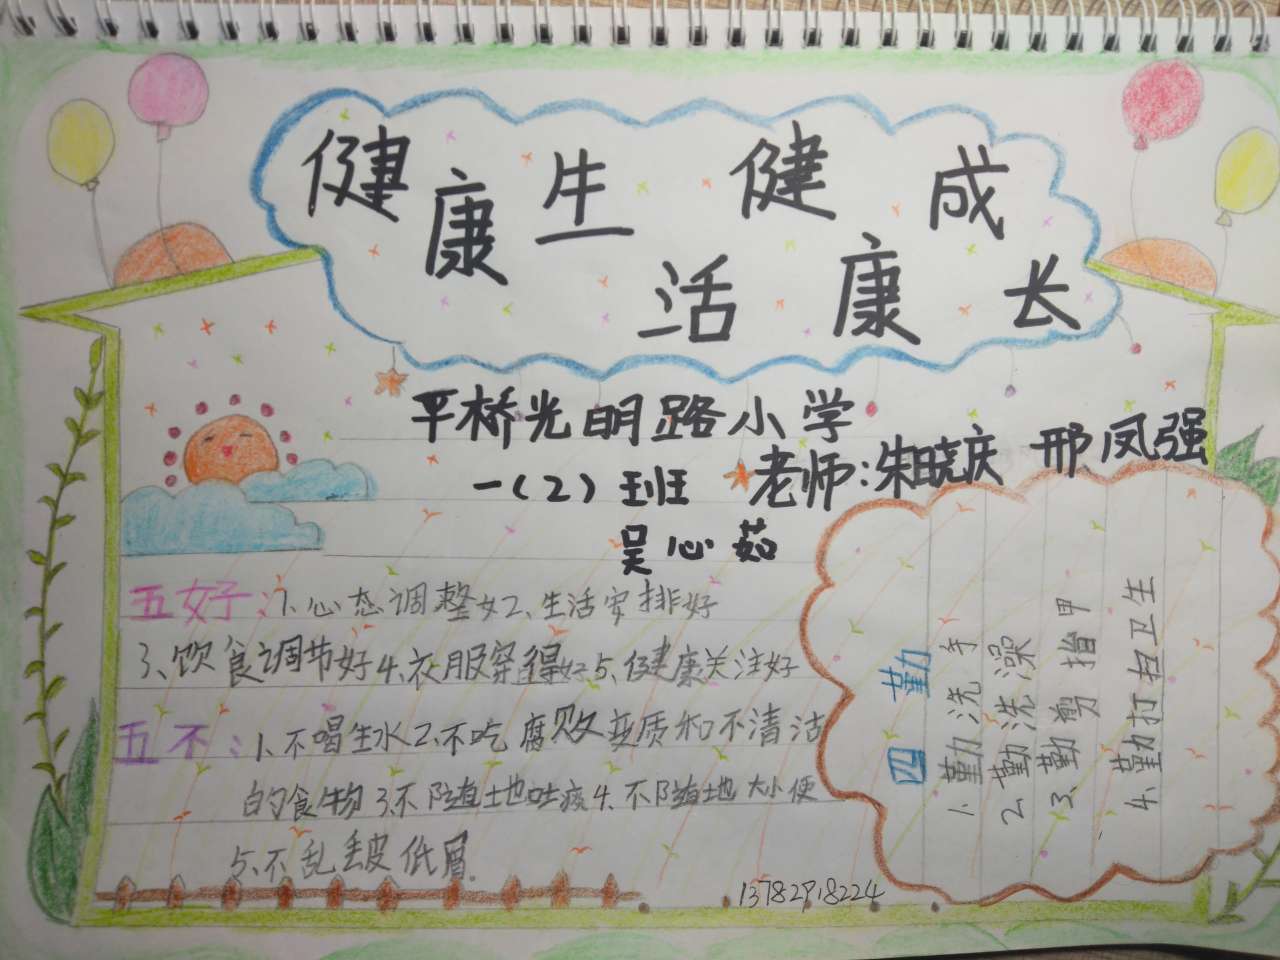 健康生活健康成长
平桥光明路小学
一(2)班 老师:朱晓庆 邢凤强
吴心茹
五好:1、心态调整好2、生活安排好
3、饮食调节好4、衣服穿得好5、健康关注好
五不:1、不喝生水2、不吃腐败变质和不清洁
的食物3、不随地吐痰4、不随地大小便
5、不乱丢皮低屑.
四勤
1、勤洗手
2、勤洗澡
3、勤剪指甲
4、勤打扫卫生
13782918224